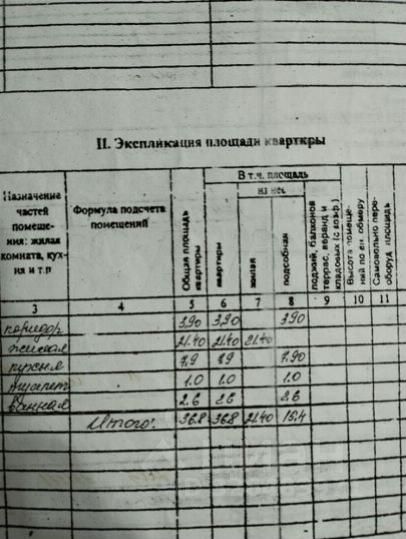 II. Экспликация площади квартиры
Назначение частей помещения: жилая комната, кухня и т.р
Формула подсчета помещений
Общая площадь квартиры
В т.ч. площадь
из нее
квартиры
жилая
подсобная
лоджий, балконов террас, веранд и кладовых (с коэф.)
Высота помещений по вн. обмеру
Самовольно переоборуд площадь
3 4 5 6 7 8 9 10 11
коридор 3.90 3,90 3.90
жилая 21.40 21.40 21.40
кухня 7.9 7.9 7.90
туалет 1.0 1.0 1.0
ванная 2.6 2.6 2.6
Итого: 36.8 36.8 21.40 15.4